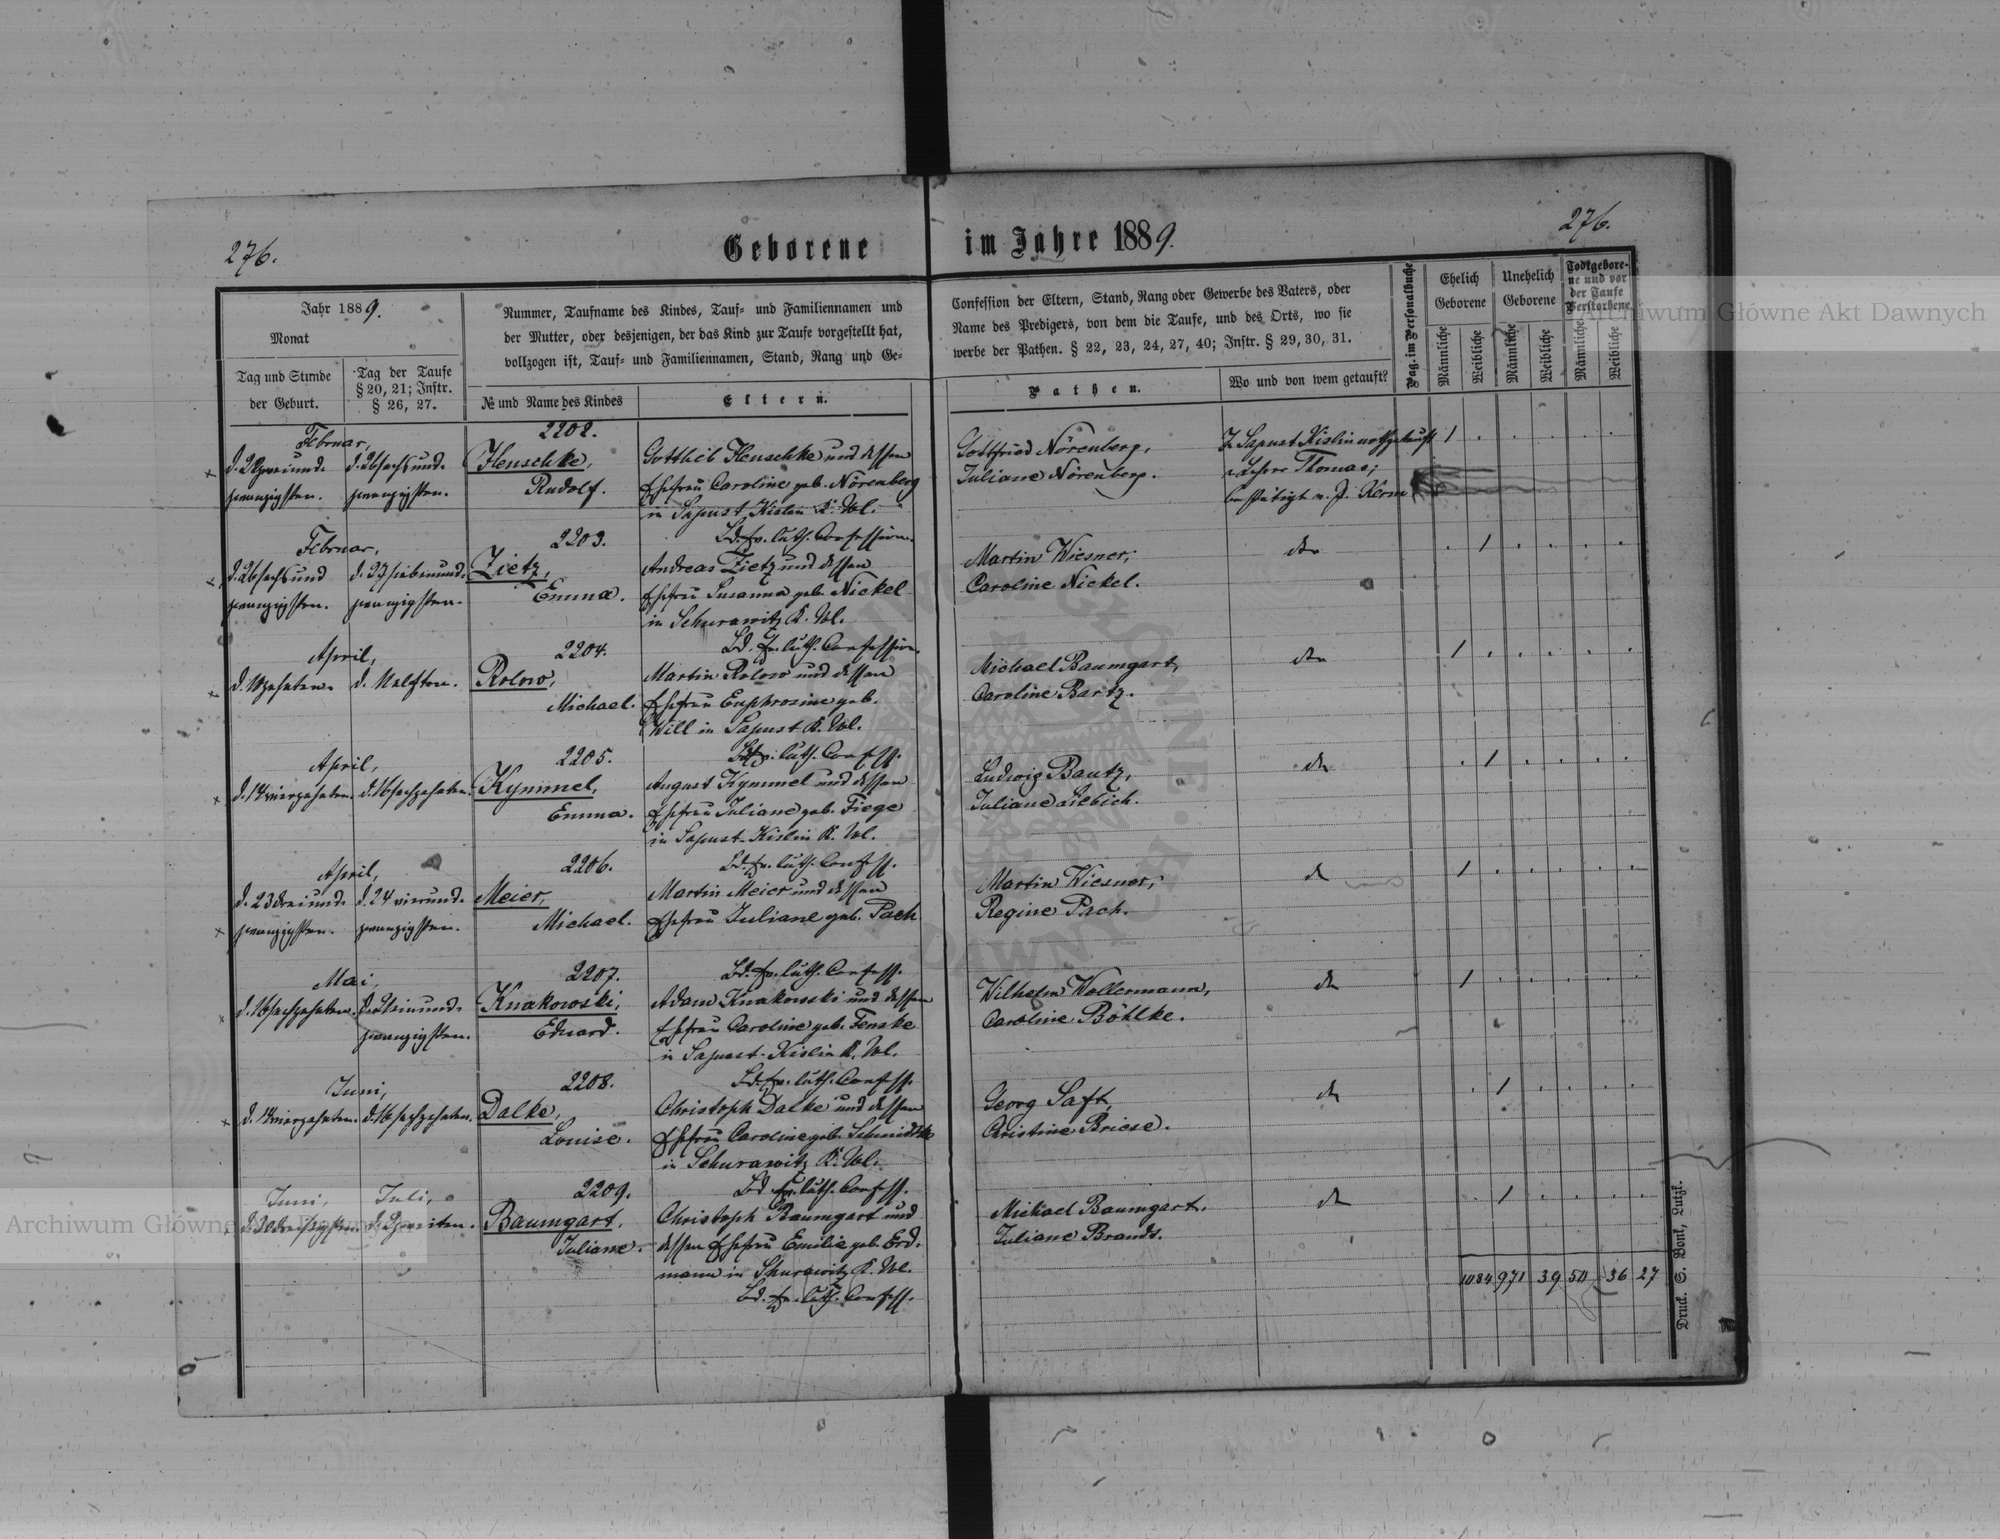 276.
Geborene im Jahre 1889.
276.
Jahr 1889.
Monat
Tag und Stunde
der Geburt.
Tag der Taufe
§ 20, 21; Instr.
§ 26, 27.
Nummer, Taufname des Kindes, Tauf- und Familiennamen und
der Mutter, oder desjenigen, der das Kind zur Taufe vorgestellt hat,
vollzogen ist, Tauf- und Familiennamen, Stand, Rang und Ge-
№ und Name des Kindes
Eltern.
Confession der Eltern, Stand, Rang oder Gewerbe des Vaters, oder
Name des Predigers, von dem die Taufe, und des Orts, wo sie
werbe der Pathen. § 22, 23, 24, 27, 40; Instr. § 29, 30, 31.
Pathen.
Wo und von wem getauft?
Pag. im Personalbuche
Ehelich
Geborene
Unehelich
Geborene
Todtgebore-
ne und vor
der Taufe
Verstorbene
Männliche
Weibliche
Männliche
Weibliche
Männliche
Weibliche
Februar,
d. 22 zweiund-
zwanzigsten.
d. 26 sechsund-
zwanzigsten.
2202.
Henschke,
Rudolf.
Gottlieb Henschke und dessen
Ehefrau Caroline geb. Nörenberg
in Sapust Kislin K. Wol.
Bd. Ev. luth. Confession.
Gottfried Nörenberg,
Juliane Nörenberg.
Z. Sapust Kislin nothgetauft
Lehrer Thomas;
bestätigt v. P. Kerm
1
Februar,
d. 26 sechsund
zwanzigsten.
d. 27 siebenund-
zwanzigsten.
2203.
Zietz,
Emma.
Andreas Zietz und dessen
Ehefrau Susanna geb. Nickel
in Schurawitz K. Wol.
Bd. Ev. luth. Confession.
Martin Wiesner;
Caroline Nickel.
do
1
April,
d. 10 zehnten.
d. 11 elften.
2204.
Rolow,
Michael.
Martin Rolow und dessen
Ehefrau Euphrosine geb.
Will in Sapust K. Wol.
Bd. Ev. luth. Confess.
Michael Baumgart,
Caroline Bartz.
do
1
April,
d. 14 vierzehnten.
d. 16 sechzehnten.
2205.
Kymmel,
Emma.
August Kymmel und dessen
Ehefrau Juliane geb. Fiege
in Sapust-Kislin K. Wol.
Bd. Ev. luth. Confess.
Ludwig Bautz,
Juliane Liebich.
do
1
April,
d. 23 dreiund-
zwanzigsten.
d. 24 vierund-
zwanzigsten.
2206.
Meier,
Michael.
Martin Meier und dessen
Ehefrau Juliane geb. Pach
Bd. Ev. luth. Confess.
Martin Wiesner;
Regine Pach.
do
1
Mai,
d. 16 sechzehnten.
d. 21 einund-
zwanzigsten.
2207.
Knakowski,
Eduard.
Adam Knakowski und dessen
Ehefrau Caroline geb. Fenske
in Sapust-Kislin K. Wol.
Bd. Ev. luth. Confess.
Wilhelm Wollermann,
Caroline Böhlke.
do
1
Juni,
d. 14 vierzehnten.
d. 16 sechzehnten.
2208.
Dalke,
Louise.
Christoph Dalke und dessen
Ehefrau Caroline geb. Schmidtke
in Schurawitz K. Wol.
Bd. Ev. luth. Confess.
Georg Saft,
Christine Briese.
do
1
Juni,
d. 30 dreißigsten.
Juli,
d. 2 zweiten.
2209.
Baumgart,
Juliane.
Christoph Baumgart und
dessen Ehefrau Emilie geb. Erd-
mann in Schurawitz K. Wol.
Bd. Ev. luth. Confess.
Michael Baumgart,
Juliane Brandt.
do
1
1084 971 39 50 36 27
Druck. S. Bonk, Lutzk.
Archiwum Główne Akt Dawnych
Archiwum Główne